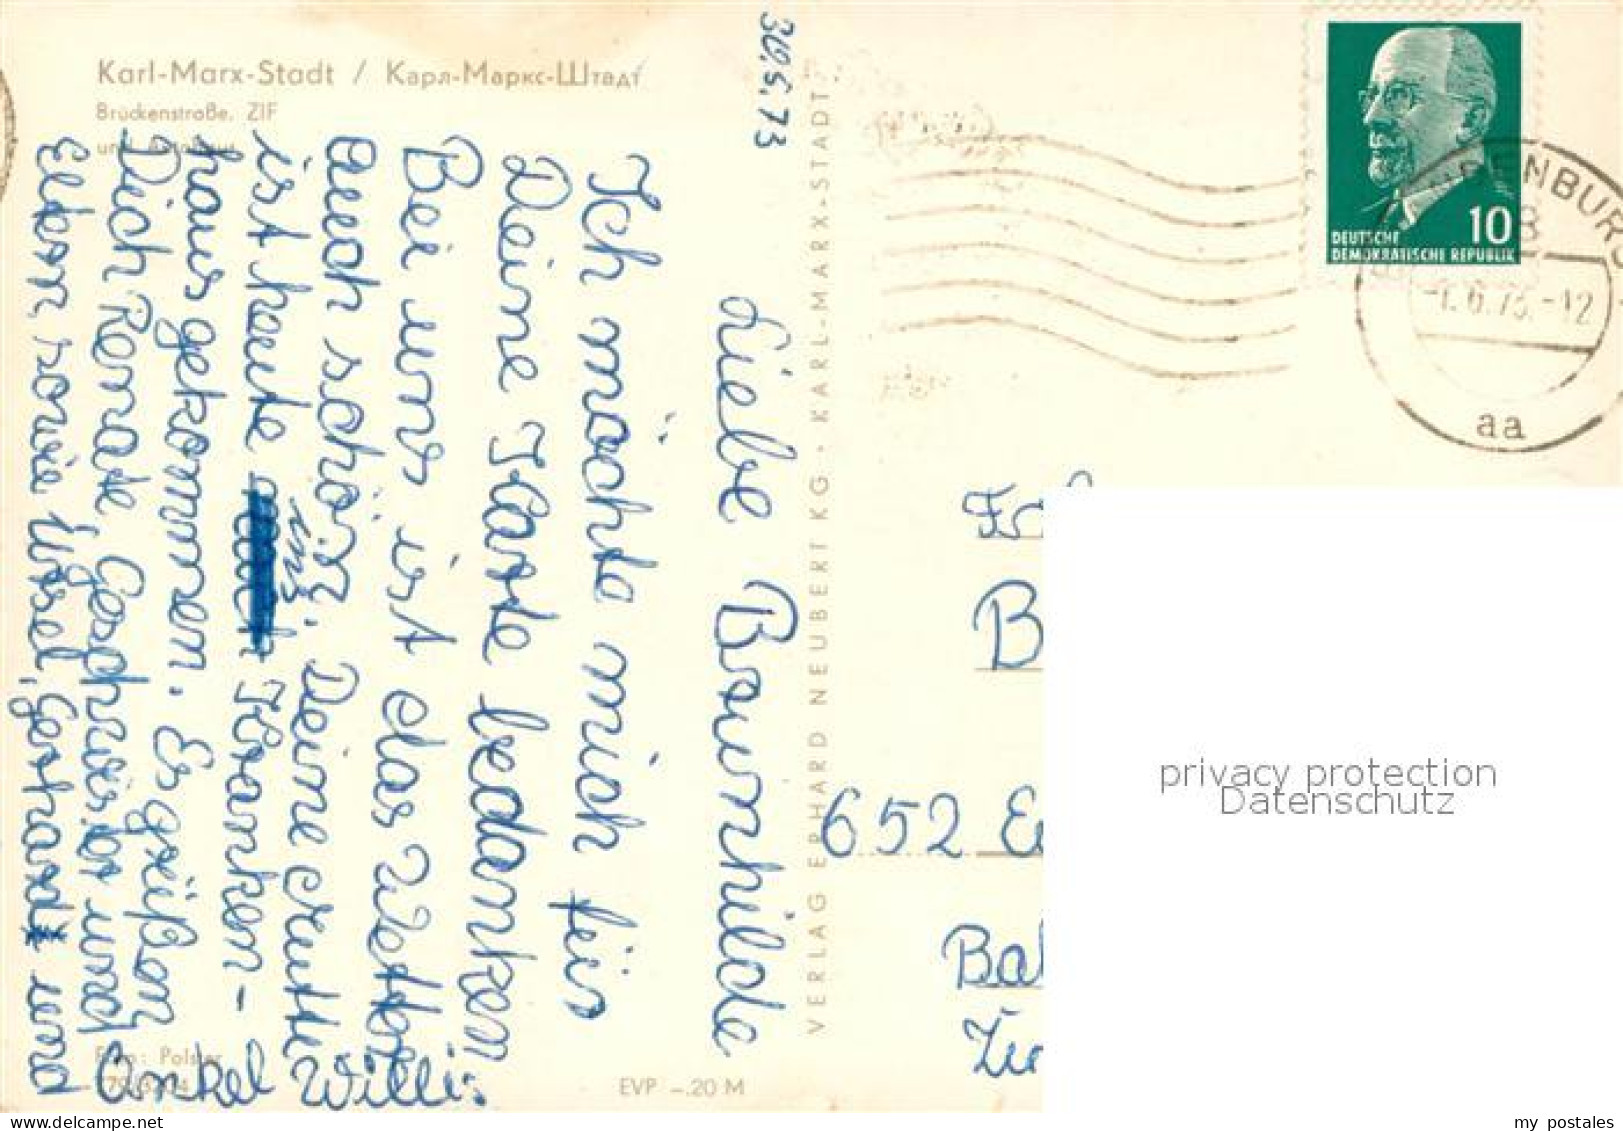 Karl-Marx-Stadt / Карл-Маркс-Штадт
Brückenstraße, ZIF
und
30.5.73
Liebe Brunhilde
Ich möchte mich für
Deine Karte bedanken
Bei uns ist das Wetter
auch schön. Deine Mutti
ist heute ins Kranken-
haus gekommen. Es grüßen
Dich Renate, Geschwister und
Eltern sowie Ursel, Gerhard und
Onkel Willi.
Foto: Polster
EVP -.20 M
VERLAG ERHARD NEUBERT KG · KARL-MARX-STADT
10
DEUTSCHE
DEMOKRATISCHE REPUBLIK
-1.6.73.-12
aa
B
652
Bal
privacy protection
Datenschutz
my postales